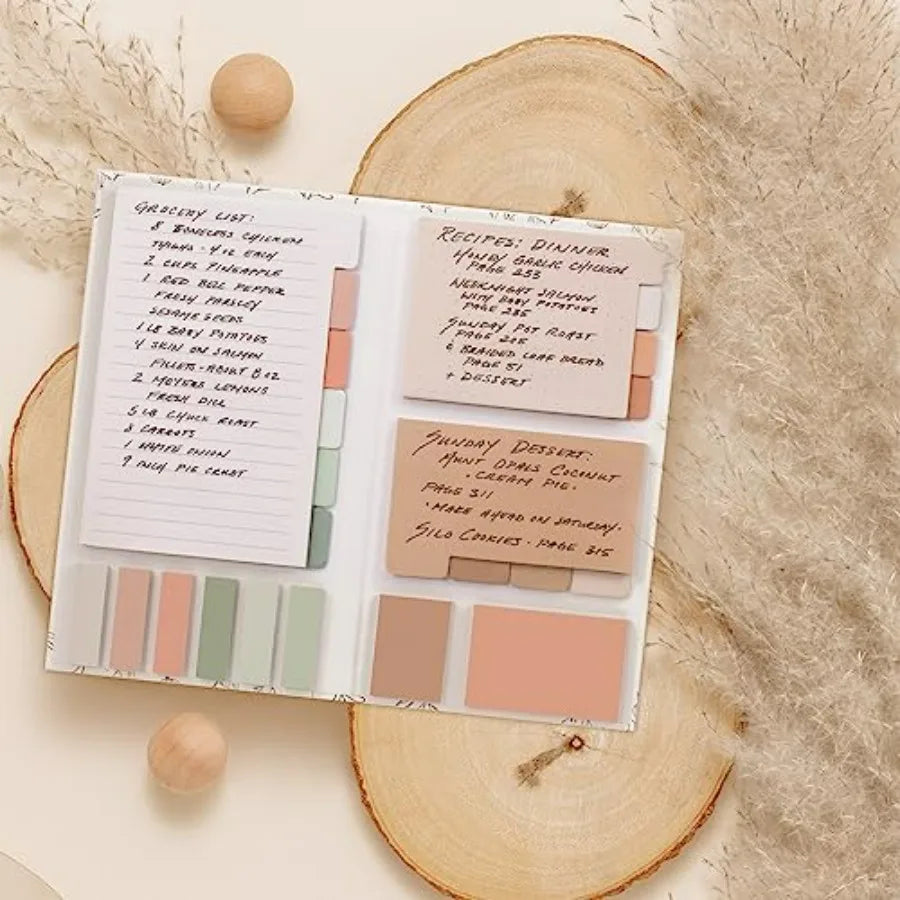 GROCERY LIST:
8 BONELESS CHICKEN
THIGHS - 4 OZ EACH
2 CUPS PINEAPPLE
1 RED BELL PEPPER
FRESH PARSLEY
SESAME SEEDS
1 LB BABY POTATOES
4 SKIN ON SALMON
FILLETS - ABOUT 8 OZ
2 MEYERS LEMONS
FRESH DILL
5 LB CHUCK ROAST
8 CARROTS
1 WHITE ONION
9 INCH PIE CRUST
RECIPES: DINNER
HONEY GARLIC CHICKEN
PAGE 233
WEEKNIGHT SALMON
WITH BABY POTATOES
PAGE 235
SUNDAY POT ROAST
PAGE 205
6 BRAIDED LOAF BREAD
PAGE 51
+ DESSERT
SUNDAY DESSERT:
AUNT OPALS COCONUT
· CREAM PIE ·
PAGE 311
· MAKE AHEAD ON SATURDAY ·
SILO COOKIES · PAGE 315